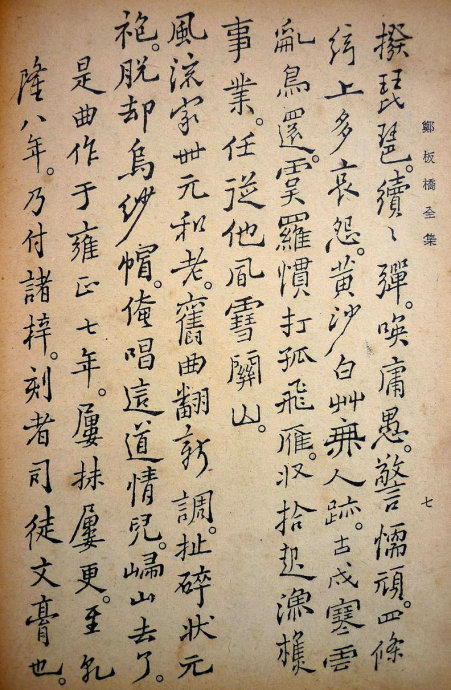 鄭板橋全集
七
撥琵琶。續〻彈。喚庸愚。警懦頑。四條
絃上多哀怨。黃沙白艸無人跡。古戍寒雲
亂鳥還。虞羅慣打孤飛雁。收拾起漁樵
事業。任從他風雪關山。
風流家世元和老。舊曲翻新調。扯碎狀元
袍。脫却烏紗帽。俺唱這道情兒。歸山去了。
是曲作于雍正七年。屢抹屢更。至乾
隆八年。乃付諸梓。刻者司徒文膏也。